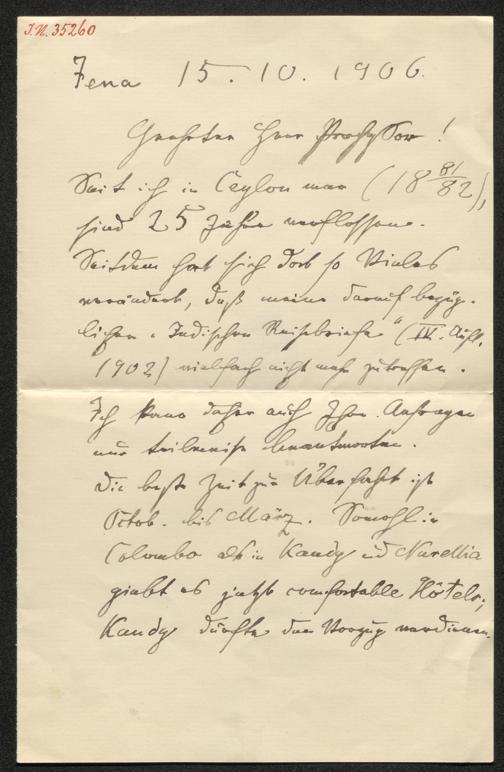 J.N. 35260
Jena 15. 10. 1906.
Geehrter Herr Professor!
Seit ich in Ceylon war (18 81/82),
sind 25 Jahre verflossen.
Seitdem hat sich dort so Vieles
verändert, daß meine darauf bezüg-
lichen „Indischen Reisebriefe“ (IV. Aufl.
1902) vielfach nicht mehr zutreffen.
Ich kann daher auch Ihre Anfragen
nur teilweise beantworten.
Die beste Zeit zur Überfahrt ist
Octob. bis März. Sowohl in
Colombo als in Kandy und Nurellia
giebt es jetzt comfortable Hôtels;
Kandy dürfte den Vorzug verdienen.